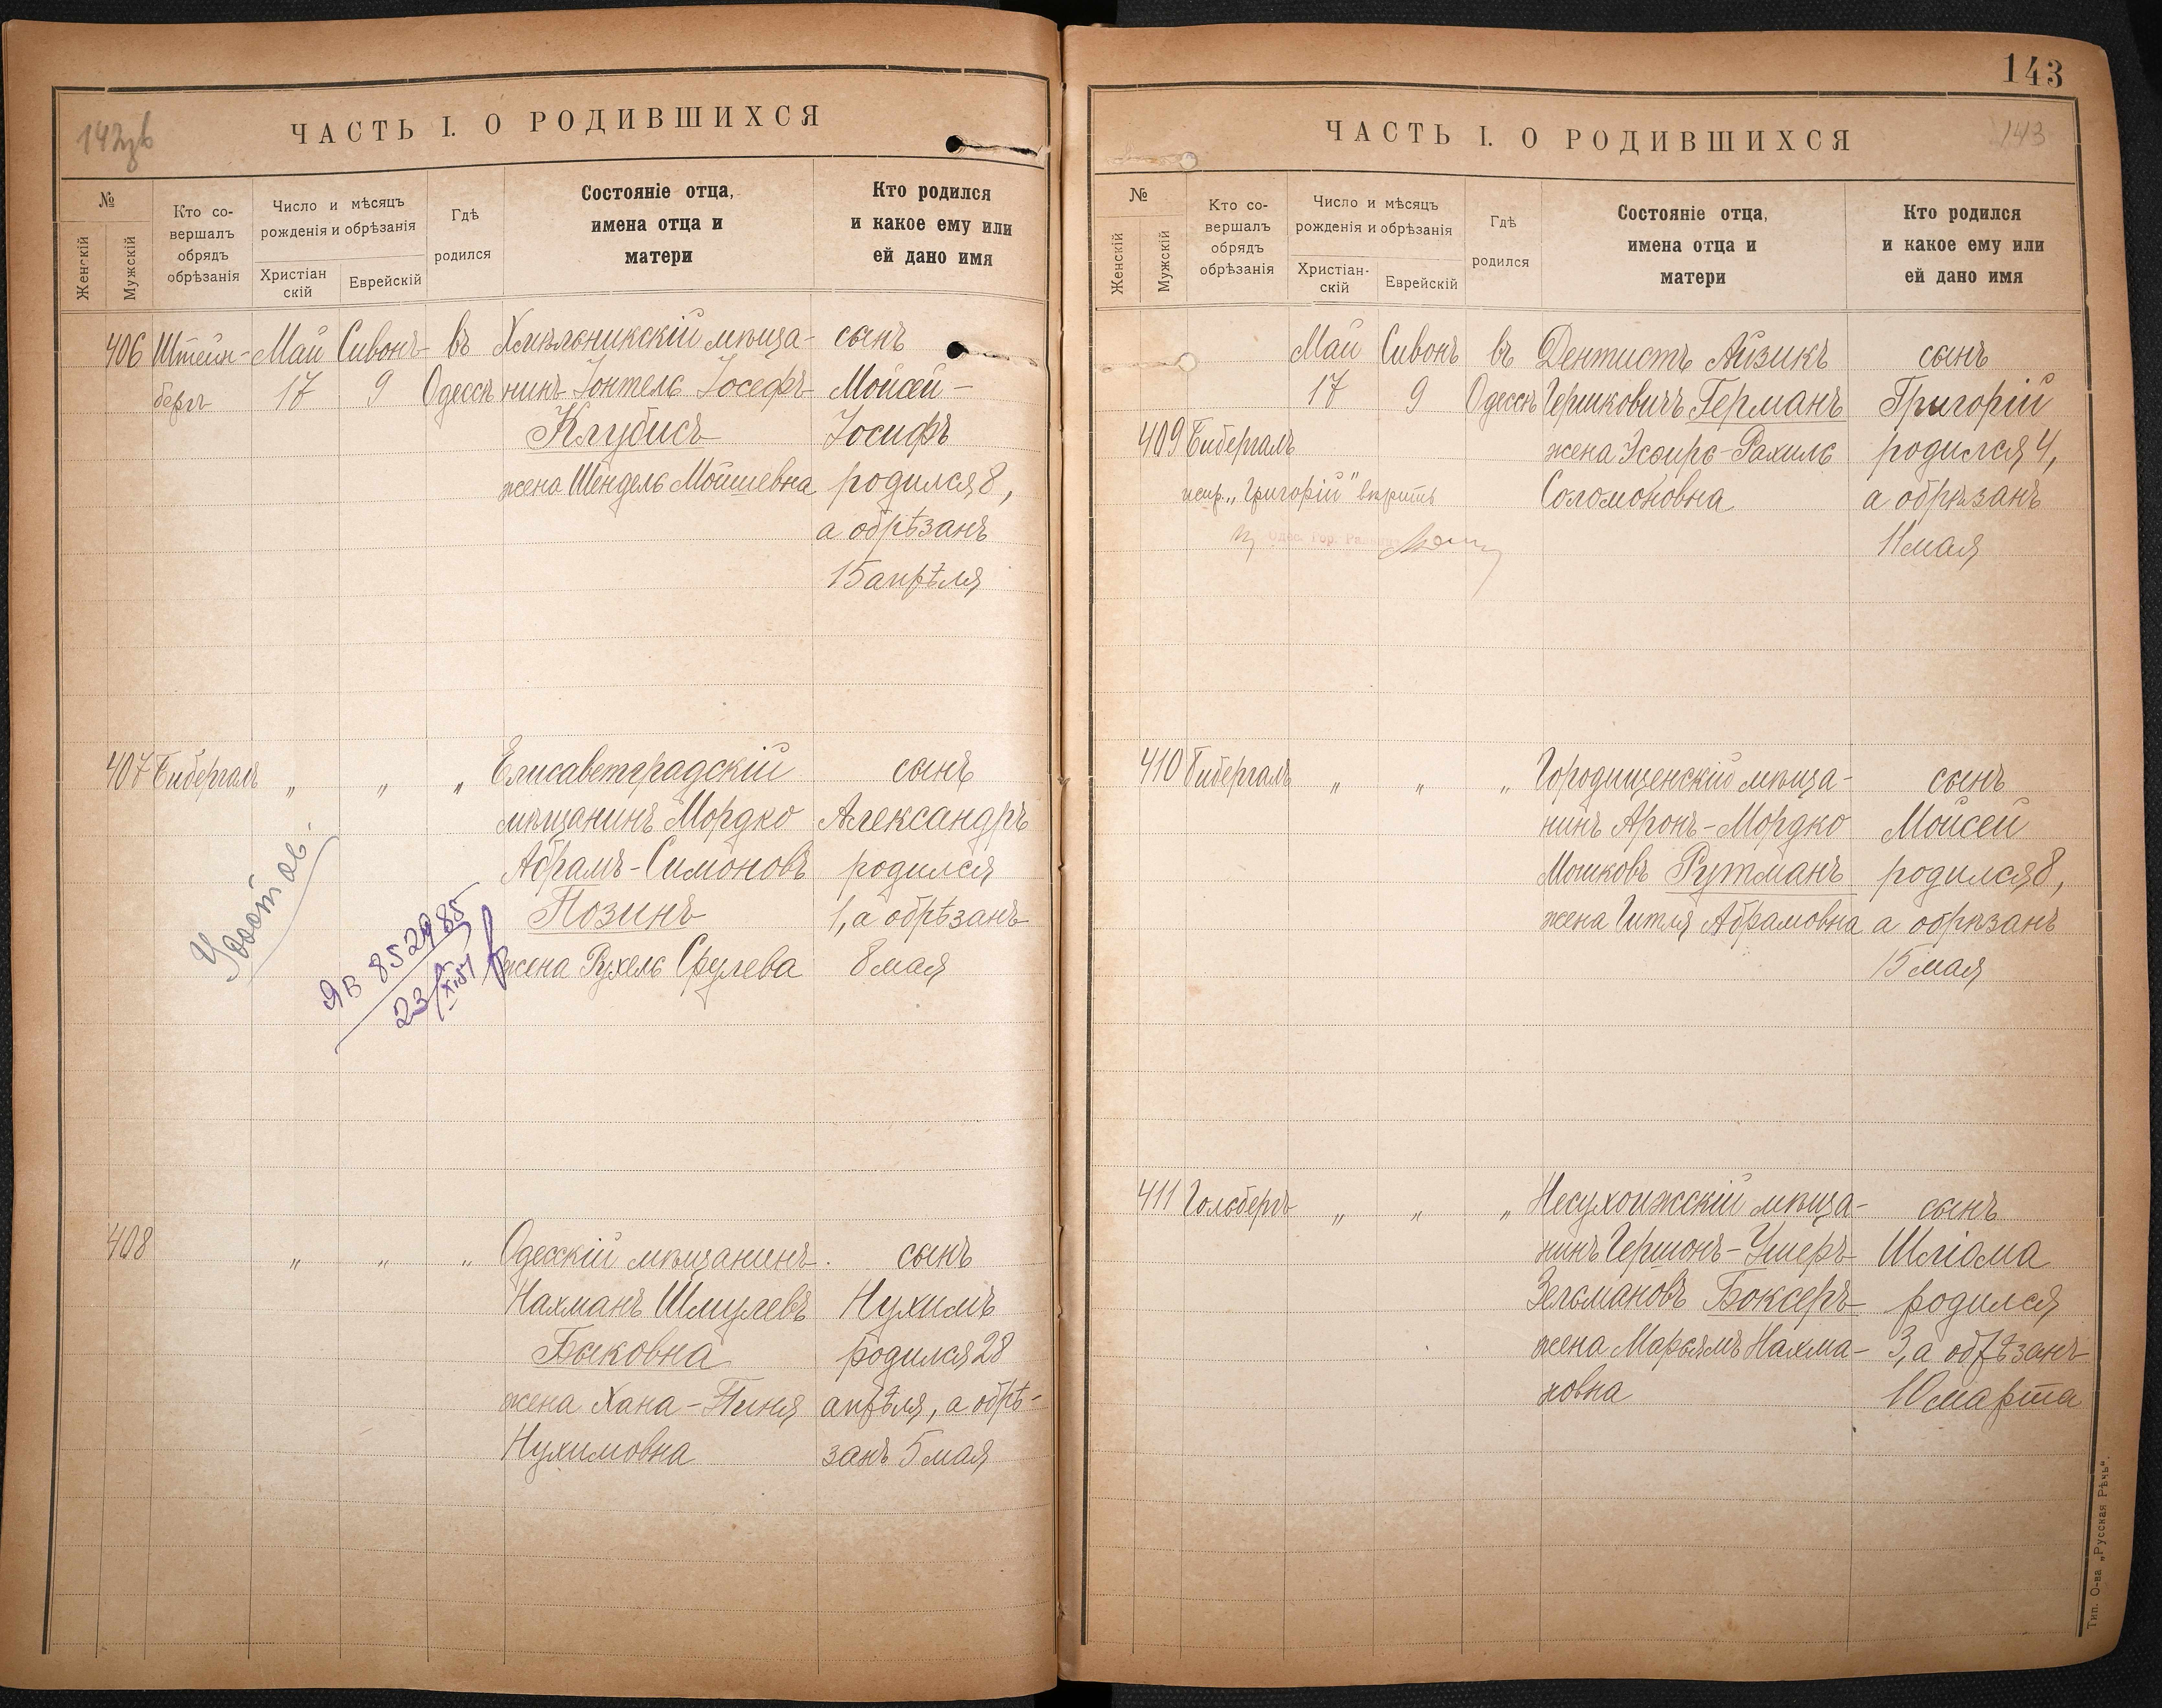 142зв
ЧАСТЬ I. О РОДИВШИХСЯ
№
Женскій
Мужскій
Кто со-
вершалъ
обрядъ
обрѣзанія
Число и мѣсяцъ
рожденія и обрѣзанія
Христіан
скій
Еврейскій
Гдѣ
родился
Состояніе отца,
имена отца и
матери
Кто родился
и какое ему или
ей дано имя
406 Штейн- Май Сивонъ въ Хмѣльникскій мѣща- сынъ
бергъ 17 9 Одессѣ нинъ Іонтель Іосефъ Мойсей-
Клубисъ Іосифъ
жена Шендель Мойшевна родился 8,
а обрѣзанъ
15 апрѣля
407 Бибергалъ „ „ „ Елисаветградскій сынъ
мѣщанинъ Мордко Александръ
Абрамъ-Симоновъ родился
Позинъ 1, а обрѣзанъ
жена Рухель Срулева 8 мая
ЯВ 852985
23/XI.51
408 „ „ „ Одесскій мѣщанинъ сынъ
Нахманъ Шмулевъ Нухимъ
Быковна родился 28
жена Хана-Пиня апрѣля, а обрѣ-
Нухимовна занъ 5 мая
143
ЧАСТЬ I. О РОДИВШИХСЯ
143
№
Женскій
Мужскій
Кто со-
вершалъ
обрядъ
обрѣзанія
Число и мѣсяцъ
рожденія и обрѣзанія
Христіан-
скій
Еврейскій
Гдѣ
родился
Состояніе отца,
имена отца и
матери
Кто родился
и какое ему или
ей дано имя
Май Сивонъ въ Дентистъ Айзикъ сынъ
17 9 Одессѣ Гершковичъ Германъ Григорій
409 Бибергалъ жена Эсѳирь-Рахиль родился 4,
испр. „Григорій" вѣрить Соломоновна а обрѣзанъ
Одес. Гор. Раввинъ 11 мая
410 Бибергалъ „ „ „ Городищенскій мѣща- сынъ
нинъ Аронъ-Мордко Мойсей
Мошковъ Рутманъ родился 8,
жена Гитля Абрамовна а обрѣзанъ
15 мая
411 Гольбергъ „ „ „ Несухоижскій мѣща- сынъ
нинъ Гершонъ-Ушеръ Шліома
Зельмановъ Боксеръ родился
жена Марьямъ Нахма- 3, а обрѣзанъ
новна 10 марта
Тип. О-ва „Русская Рѣчь".